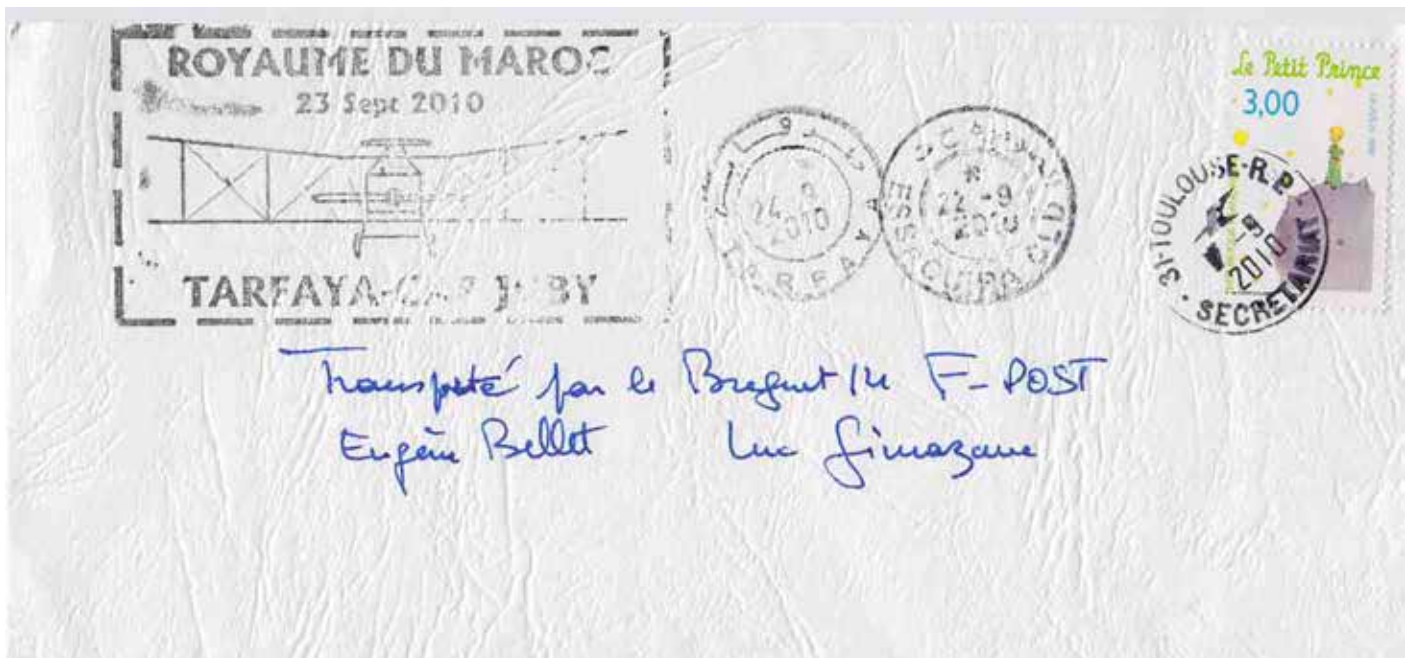 ROYAUME DU MAROC
23 Sept 2010
TARFAYA-CAP JUBY
24 9
2010
TARFAYA
22 -9
2010
ESSAOUIRA
Le Petit Prince
3,00
31-TOULOUSE-R.P.
-9
2010
SECRETARIAT
Transporté par le Breguet 14 F-POST
Eugène Bellet Luc Gimazane